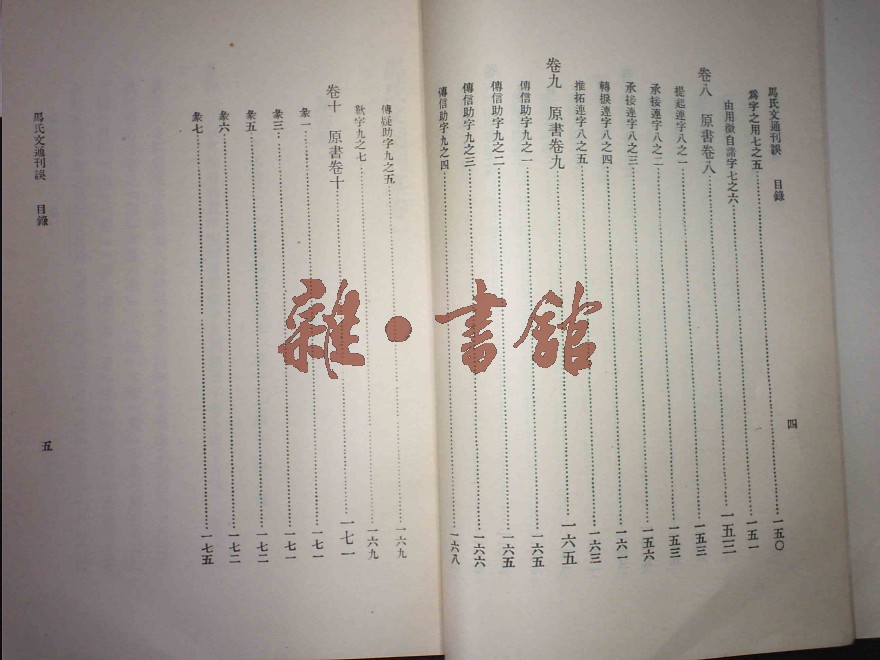 馬氏文通刊誤　目錄　四
爲字之用七之五……一五〇
由用徵自諸字七之六……一五一
卷八　原書卷八……一五三
提起連字八之一……一五三
承接連字八之二……一五三
承接連字八之三……一五六
轉捩連字八之四……一六一
推拓連字八之五……一六三
卷九　原書卷九……一六五
傳信助字九之一……一六五
傳信助字九之二……一六五
傳信助字九之三……一六六
傳信助字九之四……一六八
傳疑助字九之五……一六九
歎字九之七……一六九
卷十　原書卷十……一七一
彖一……一七一
彖三……一七一
彖五……一七二
彖六……一七二
彖七……一七五
馬氏文通刊誤　目錄　五
雜·書館